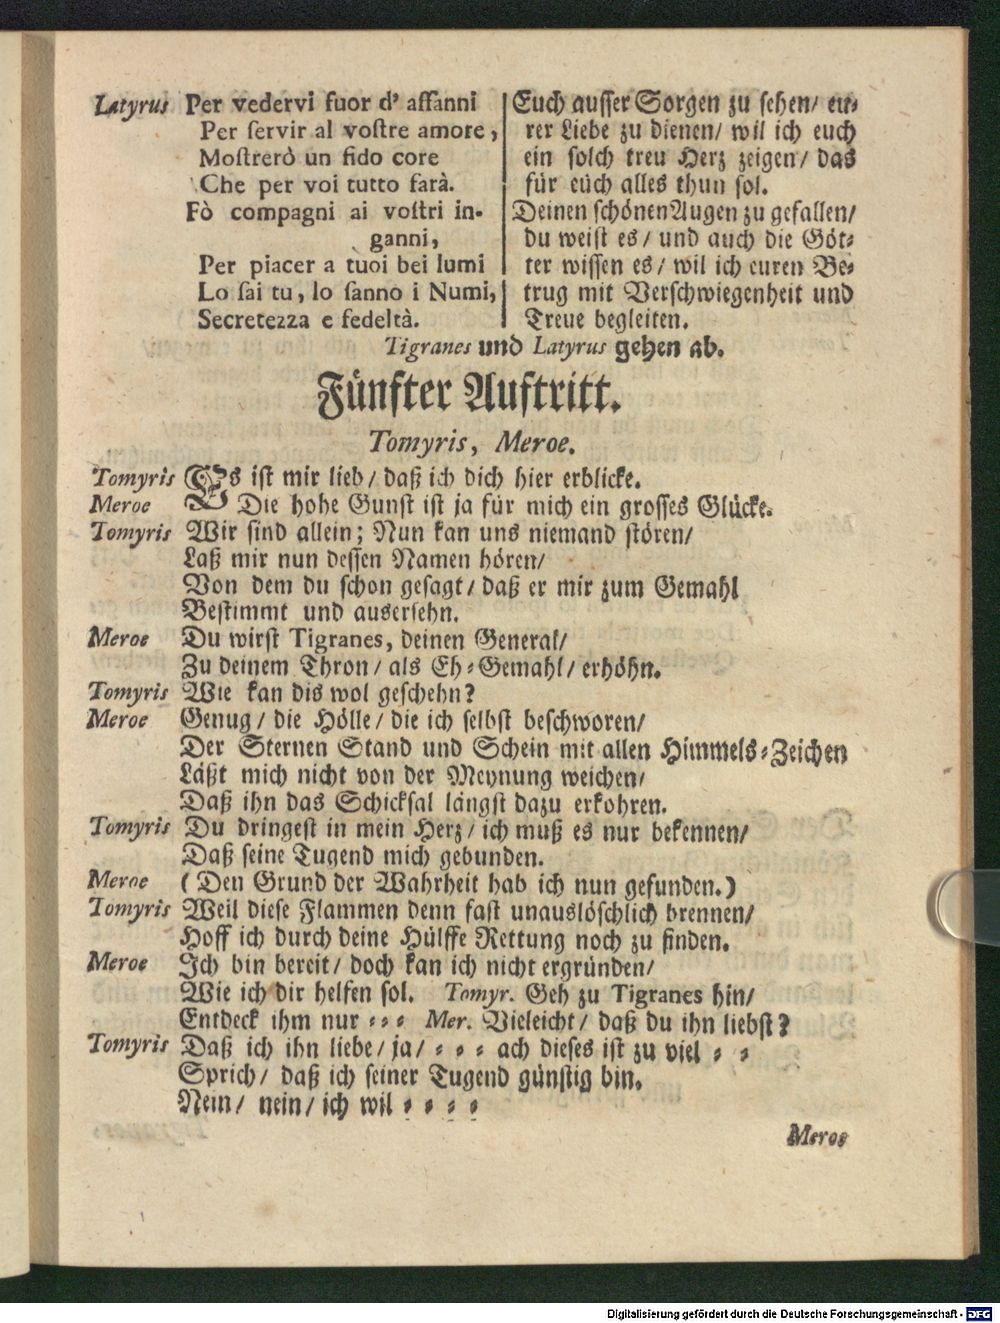 Latyrus Per vedervi fuor d' affanni
Per servir al vostre amore,
Mostrerò un fido core
Che per voi tutto farà.
Fò compagni ai vostri in-
ganni,
Per piacer a tuoi bei lumi
Lo sai tu, lo sanno i Numi,
Secretezza e fedeltà.
Euch ausser Sorgen zu sehen/ eu-
rer Liebe zu dienen/ wil ich euch
ein solch treu Herz zeigen/ das
für euch alles thun sol.
Deinen schönen Augen zu gefallen/
du weist es/ und auch die Göt-
ter wissen es/ wil ich euren Be-
trug mit Verschwiegenheit und
Treue begleiten.
Tigranes und Latyrus gehen ab.
Fünfter Auftritt.
Tomyris, Meroe.
Tomyris Es ist mir lieb/ daß ich dich hier erblicke.
Meroe Die hohe Gunst ist ja für mich ein grosses Glücke.
Tomyris Wir sind allein; Nun kan uns niemand stören/
Laß mir nun dessen Namen hören/
Von dem du schon gesagt/ daß er mir zum Gemahl
Bestimmt und ausersehn.
Meroe Du wirst Tigranes, deinen General/
Zu deinem Thron/ als Eh-Gemahl/ erhöhn.
Tomyris Wie kan dis wol geschehn?
Meroe Genug/ die Hölle/ die ich selbst beschworen/
Der Sternen Stand und Schein mit allen Himmels-Zeichen
Läßt mich nicht von der Meynung weichen/
Daß ihn das Schicksal längst dazu erkohren.
Tomyris Du dringest in mein Herz/ ich muß es nur bekennen/
Daß seine Tugend mich gebunden.
Meroe (Den Grund der Wahrheit hab ich nun gefunden.)
Tomyris Weil diese Flammen denn fast unauslöschlich brennen/
Hoff ich durch deine Hülffe Rettung noch zu finden.
Meroe Ich bin bereit/ doch kan ich nicht ergründen/
Wie ich dir helfen sol. Tomyr. Geh zu Tigranes hin/
Entdeck ihm nur - - - Mer. Vieleicht/ daß du ihn liebst?
Tomyris Daß ich ihn liebe/ ja/ - - - ach dieses ist zu viel - -
Sprich/ daß ich seiner Tugend günstig bin.
Nein/ nein/ ich wil - - - -
Meroe
Digitalisierung gefördert durch die Deutsche Forschungsgemeinschaft - DFG